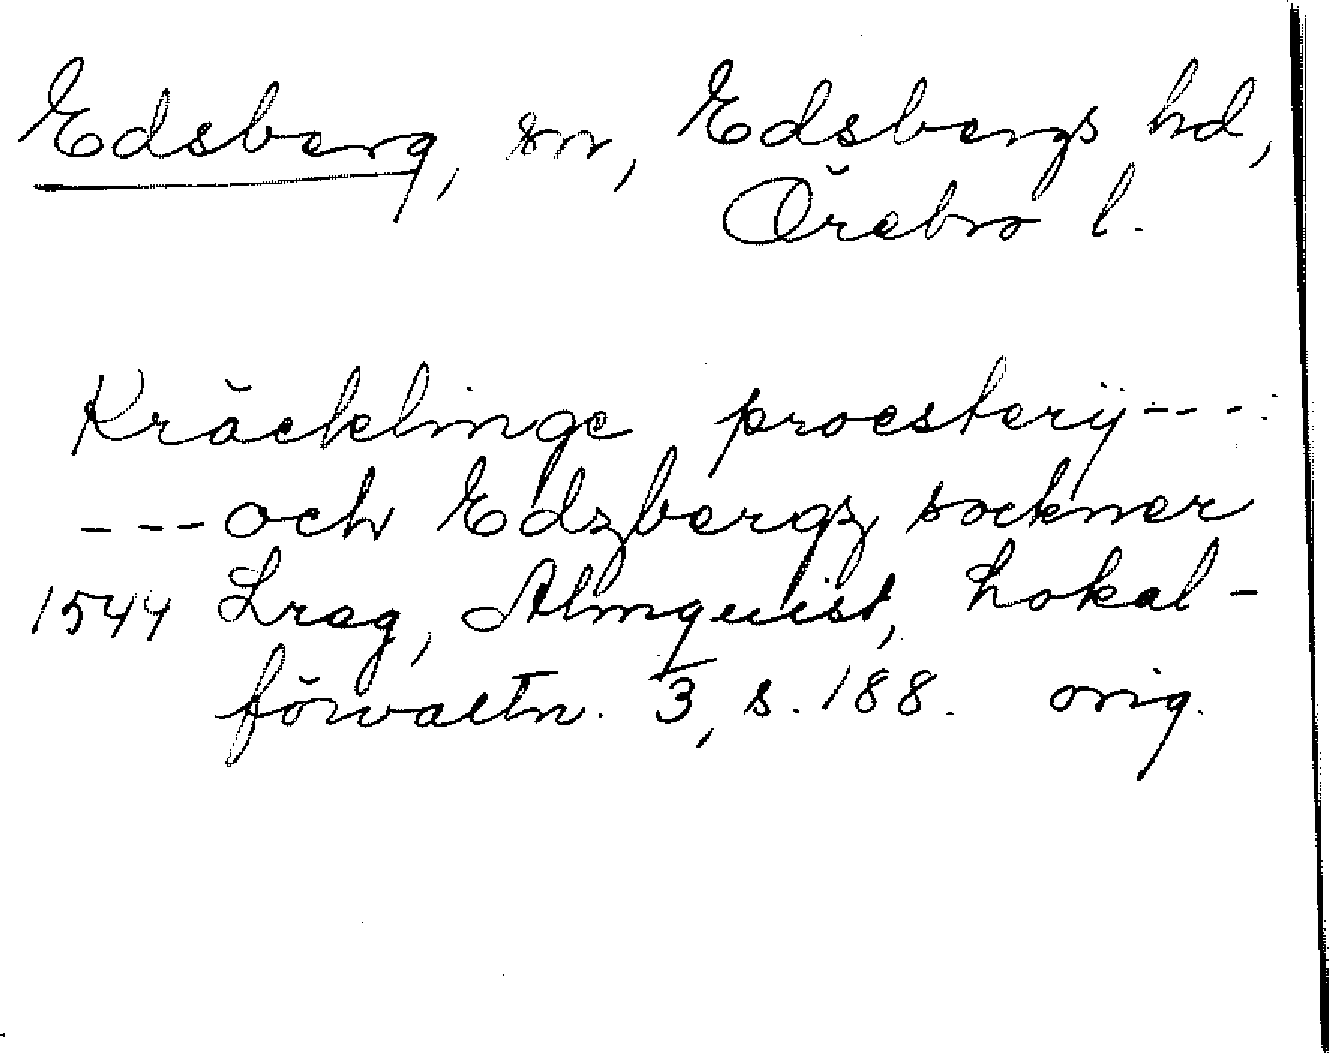 Edsberg, sn, Edsbergs hd,
Örebro l.
Kräcklinge proesterij---:
---och Edzbergz sockner
1544 Lreg, Almquist, Lokal-
förvaltn. 3, s. 188. orig.